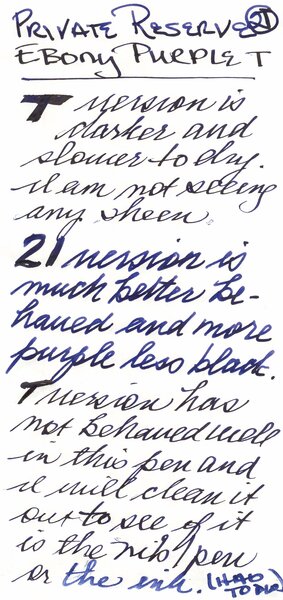 PRIVATE RESERVE 21
EBONY PURPLE T
T version is
darker and
slower to dry.
I am not seeing
any sheen
21 version is
much better be-
haved and more
purple less black.
T version has
not behaved well
in this pen and
I will clean it
out to see if it
is the nib/pen
or the ink. (HAD
TO DIP)